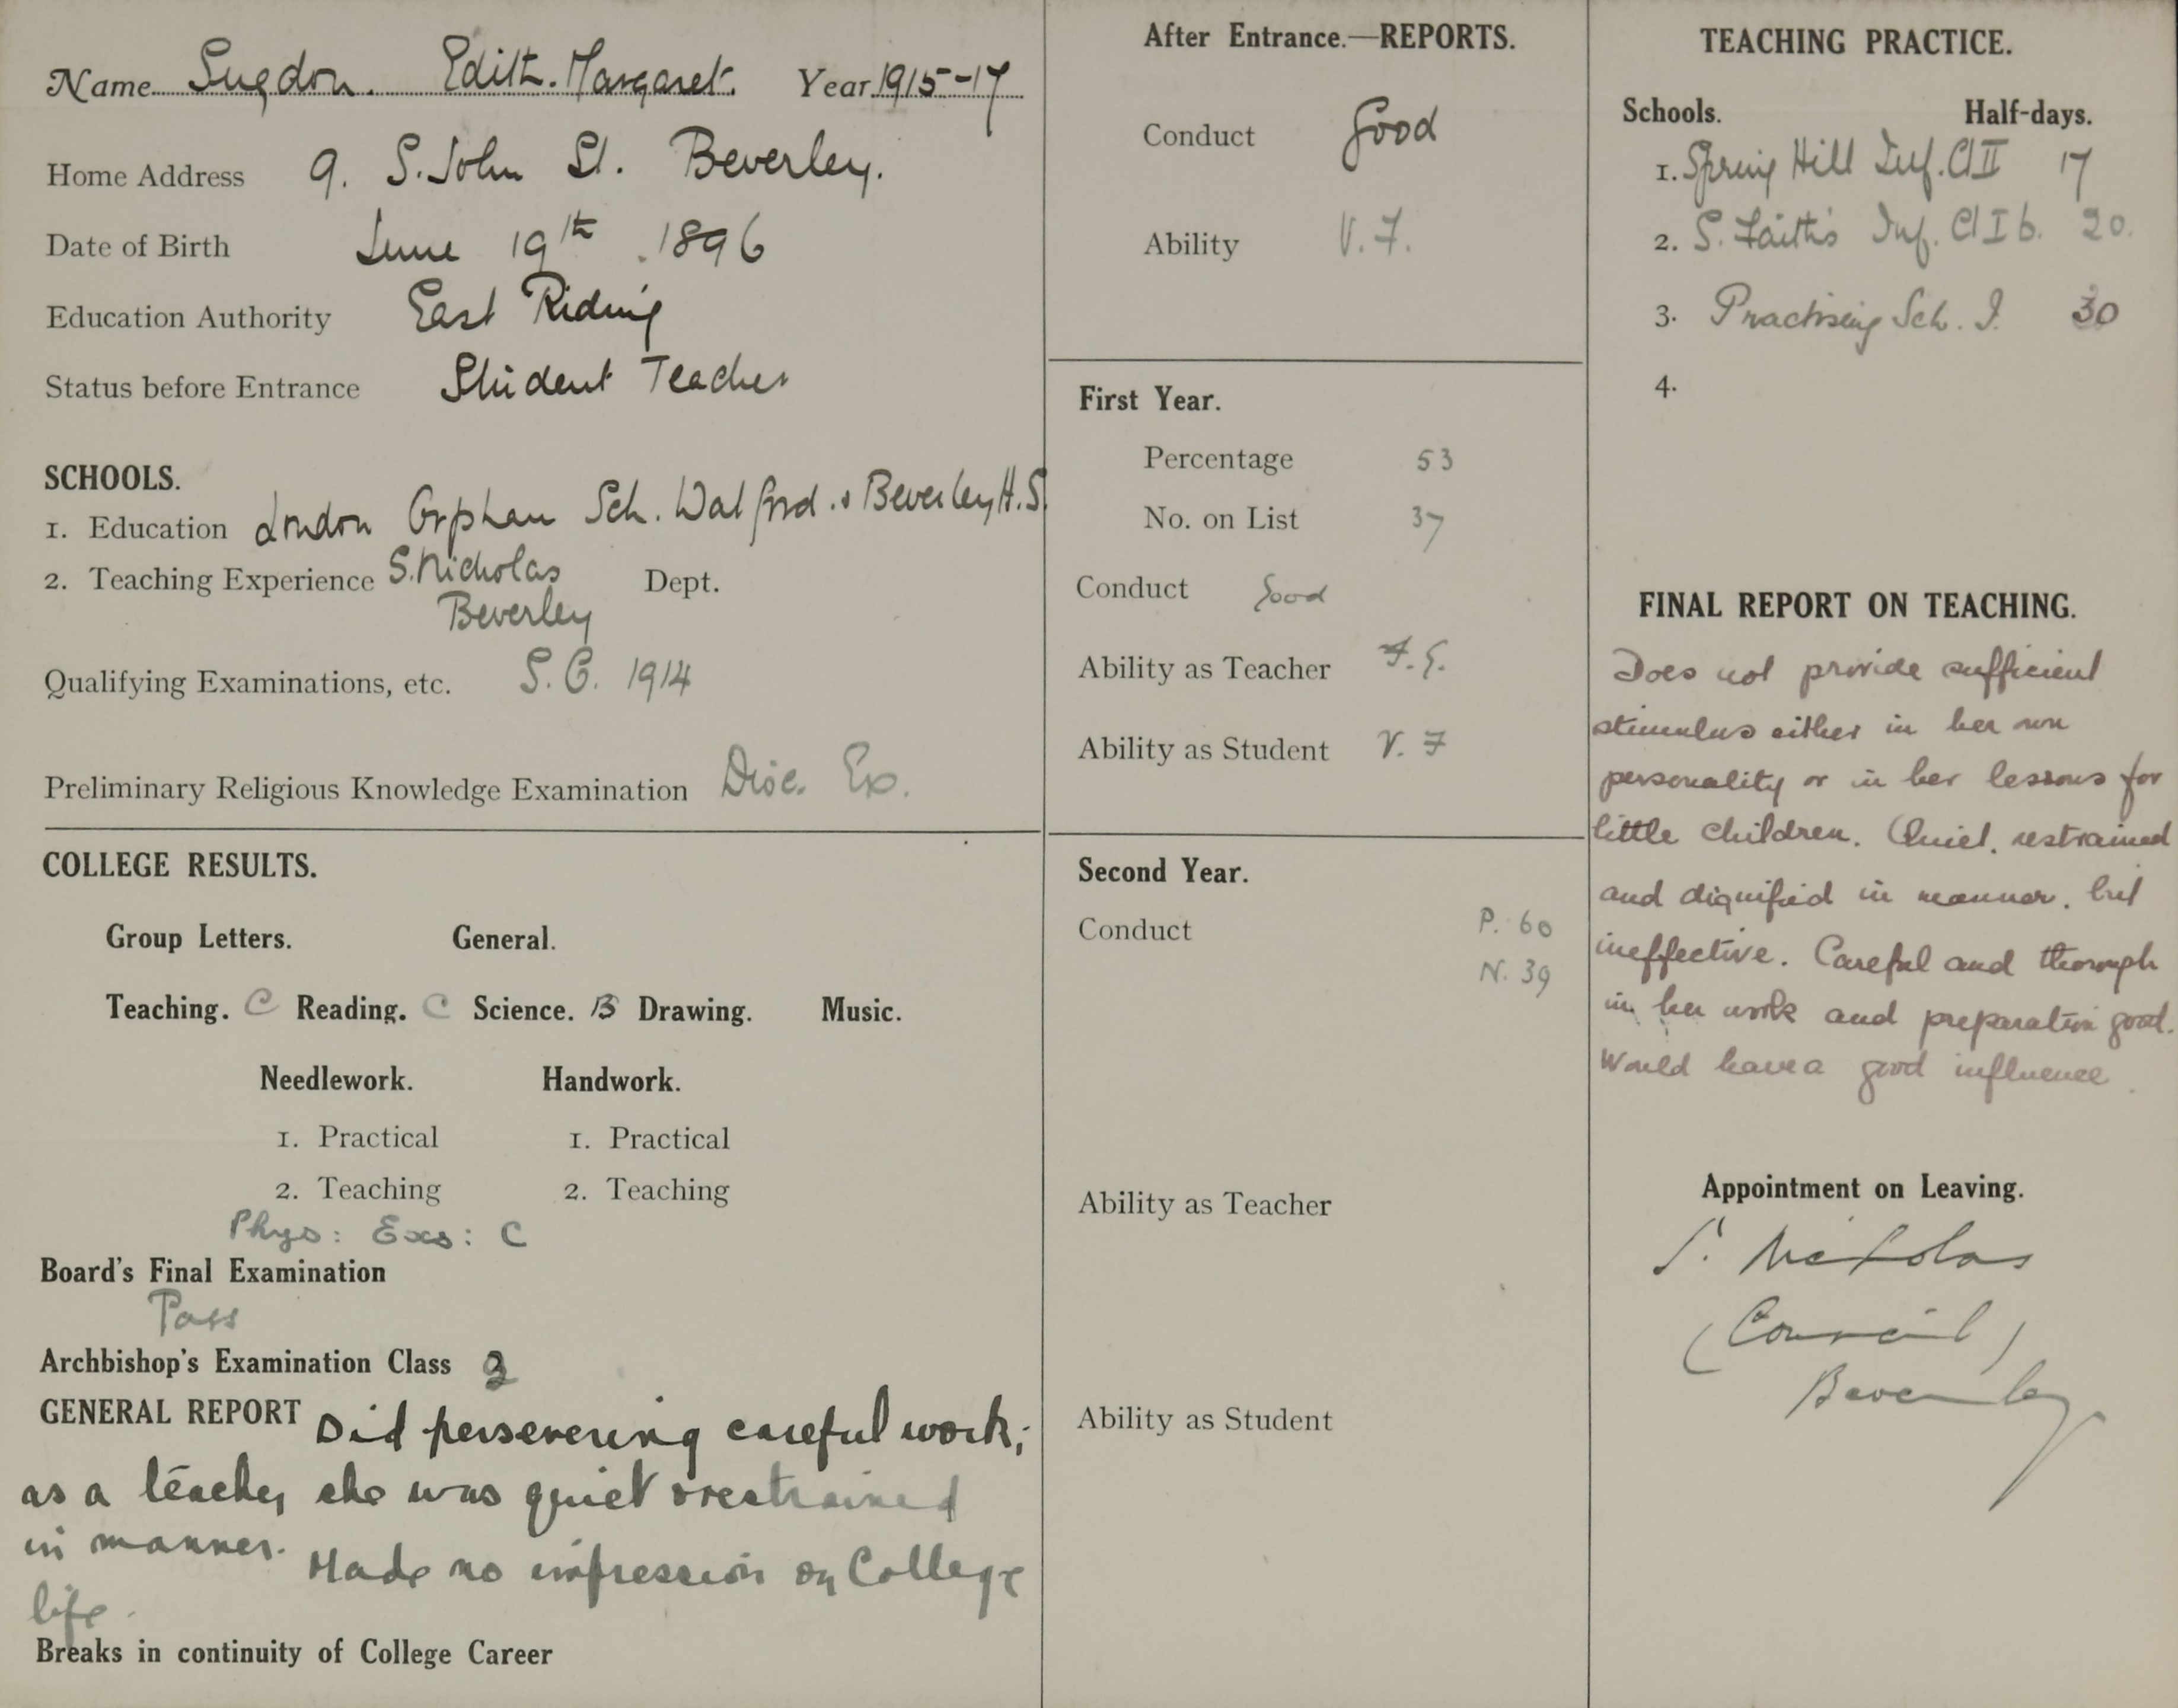 Name Sugdon. Edith. Margaret. Year 1915-17
Home Address 9. S. John St. Beverley.
Date of Birth June 19th. 1896
Education Authority East Riding
Status before Entrance Student Teacher
SCHOOLS.
1. Education London Orphan Sch. Watford. & Beverley H.S.
2. Teaching Experience S. Nicholas Dept.
Beverley
Qualifying Examinations, etc. S.C. 1914
Preliminary Religious Knowledge Examination Dioc. Ex.
COLLEGE RESULTS.
Group Letters. General.
Teaching. C Reading. C Science. B Drawing. Music.
Needlework. Handwork.
1. Practical 1. Practical
2. Teaching 2. Teaching
Phys: Exs: C
Board's Final Examination
Pass
Archbishop's Examination Class
GENERAL REPORT Did persevering careful work;
as a teacher she was quiet & restrained
in manner. Made no impression on College
life.
Breaks in continuity of College Career
After Entrance.—REPORTS.
Conduct Good
Ability V.F.
First Year.
Percentage 53
No. on List 37
Conduct Good
Ability as Teacher F.G.
Ability as Student V. F
Second Year.
Conduct P. 60
N. 39
Ability as Teacher
Ability as Student
TEACHING PRACTICE.
Schools. Half-days.
1. Spring Hill Inf. Cl II 17
2. S. Faith's Inf. Cl I b. 20.
3. Practising Sch. I. 30
4.
FINAL REPORT ON TEACHING.
Does not provide sufficient
stimulus either in her own
personality or in her lessons for
little children. Quiet, restrained
and dignified in manner, but
ineffective. Careful and thorough
in her work and preparation good.
Would have a good influence.
Appointment on Leaving.
S. Nicholas
(Council)
Beverley